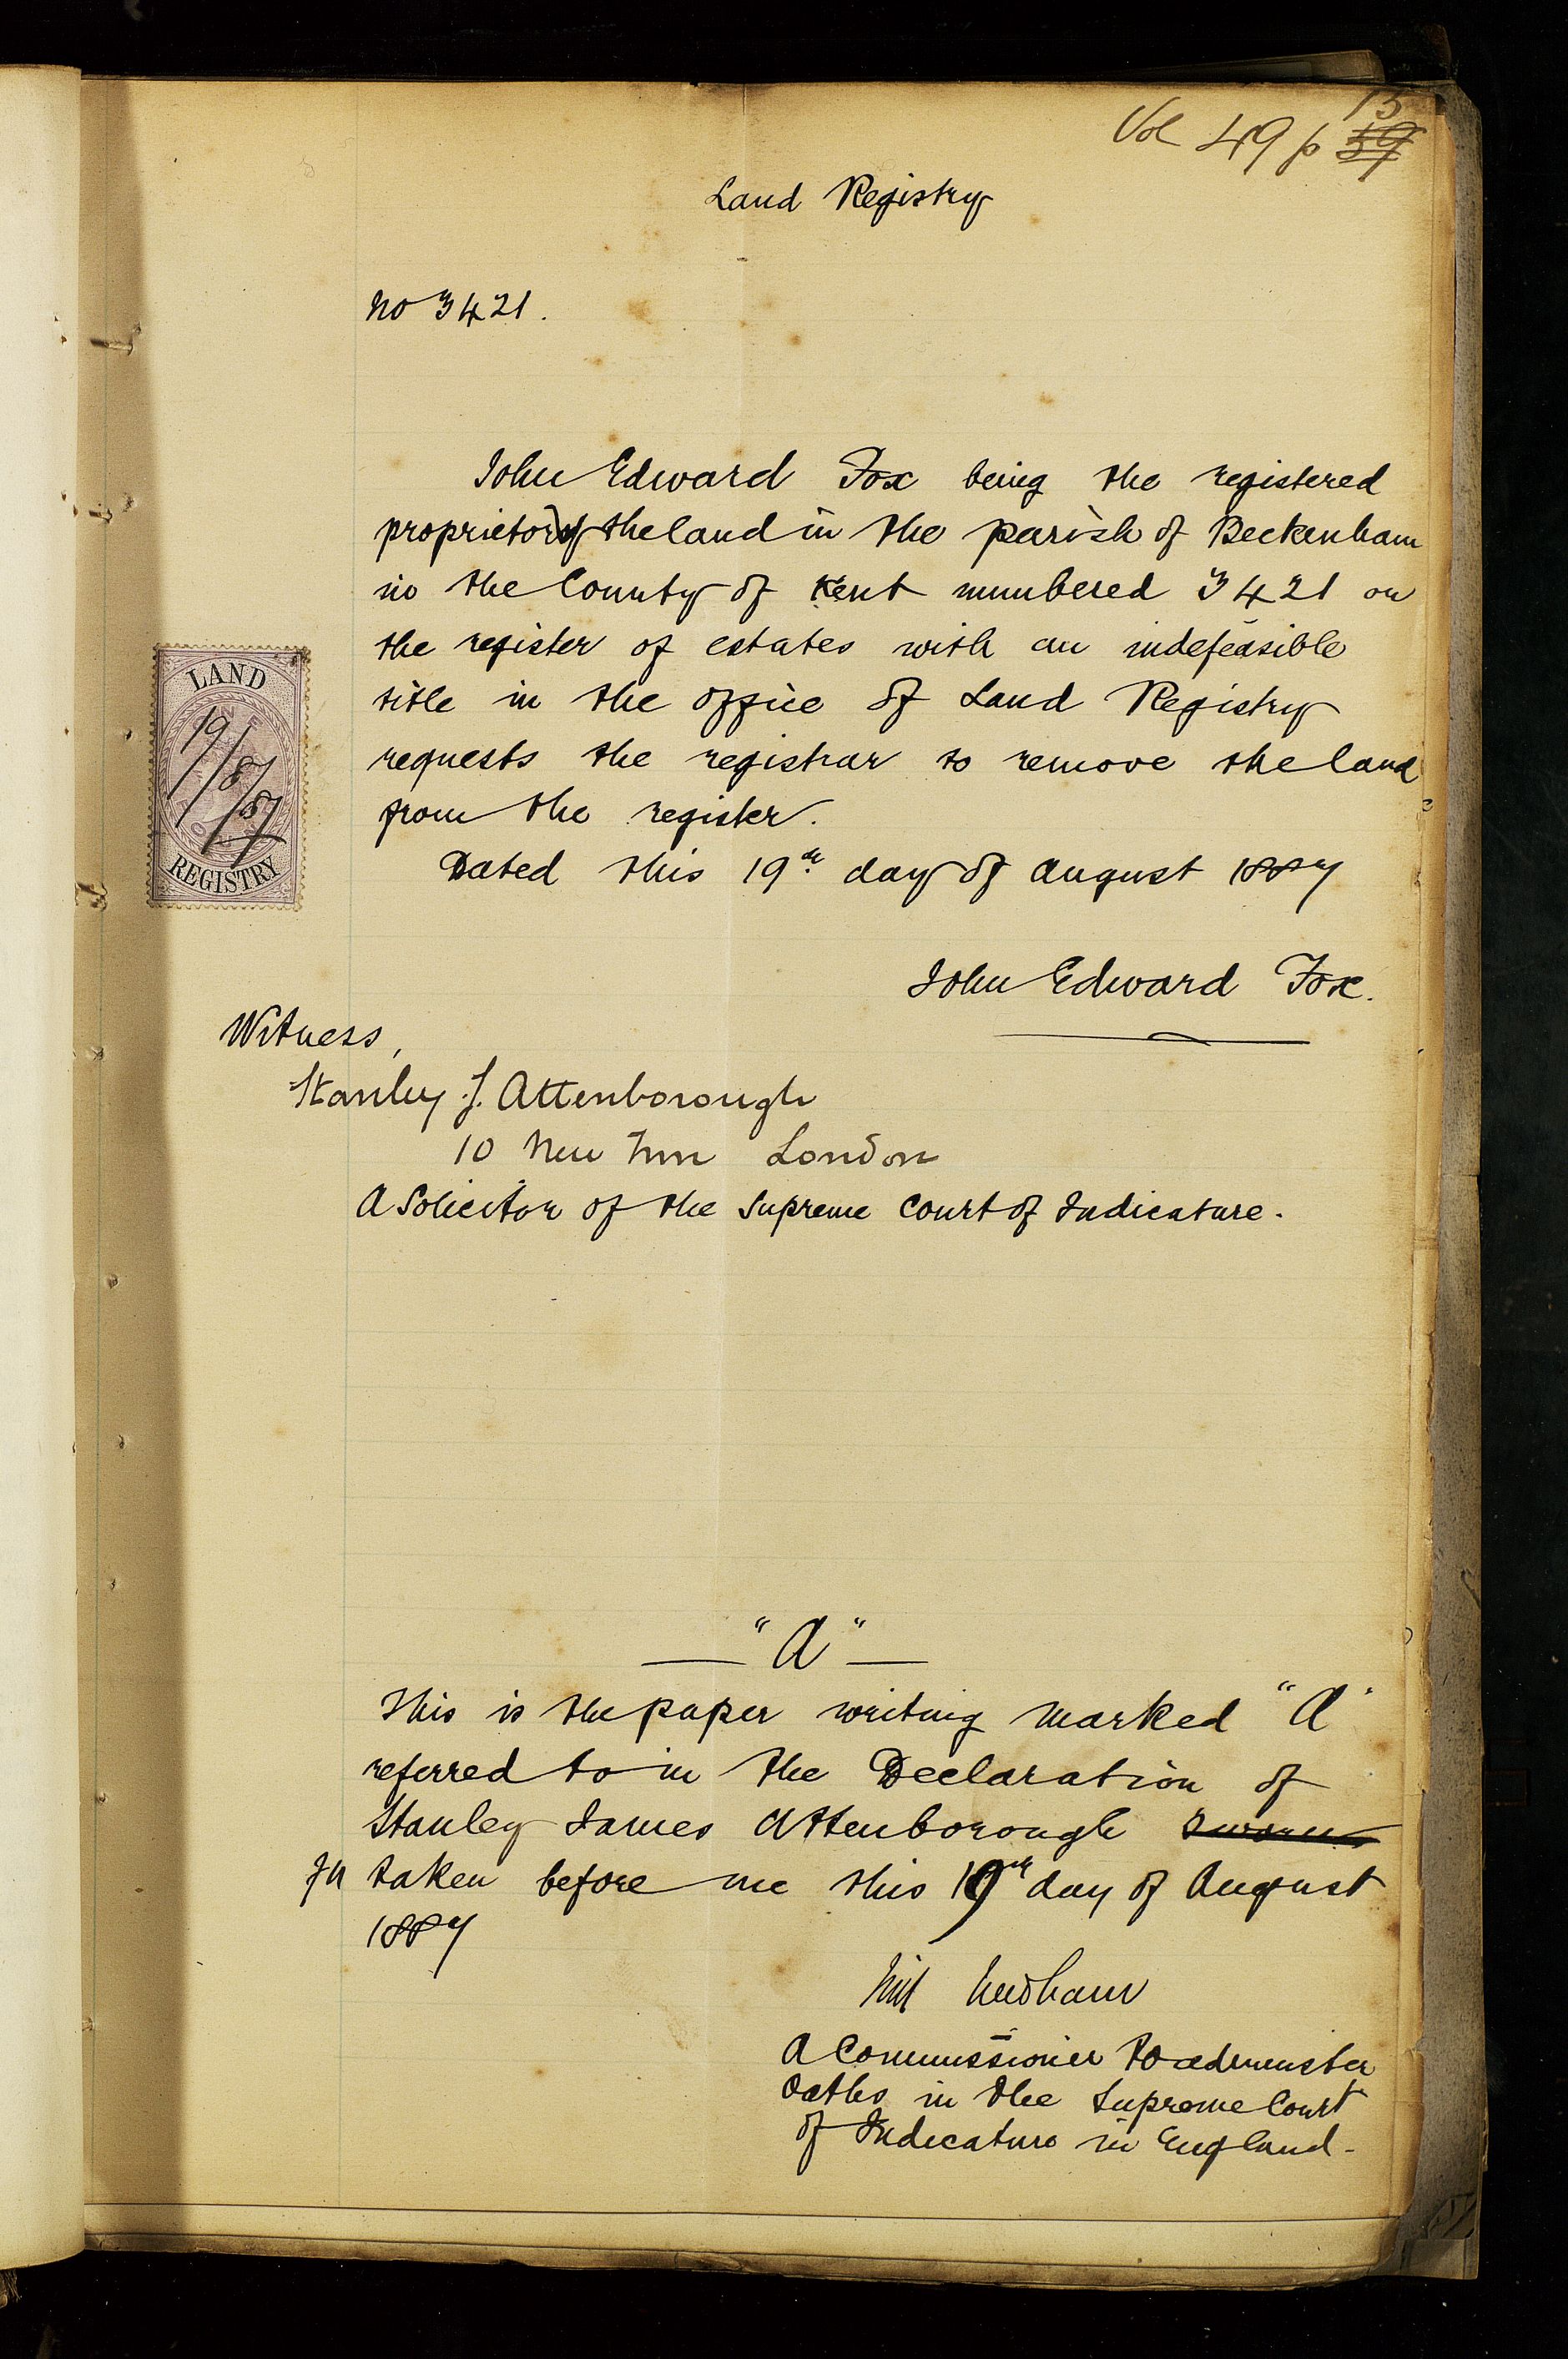 Vol 49 p 59
13
Land Registry
No 3421.
John Edward Fox being the registered
proprietor of the land in the parish of Beckenham
in the County of Kent numbered 3421 on
the register of estates with an indefeasible
title in the office of Land Registry
requests the registrar to remove the land
from the register.
Dated this 19th day of August 1887
LAND
19/8/87
REGISTRY
John Edward Fox.
Witness,
Stanley J. Attenborough
10 New Inn London
A Solicitor of the Supreme Court of Judicature.
"A"
This is the paper writing marked "A"
referred to in the Declaration of
Stanley James Attenborough sworn
taken before me this 19th day of August
1887
Needham
A Commissioner to administer
Oaths in the Supreme Court
of Judicature in England.